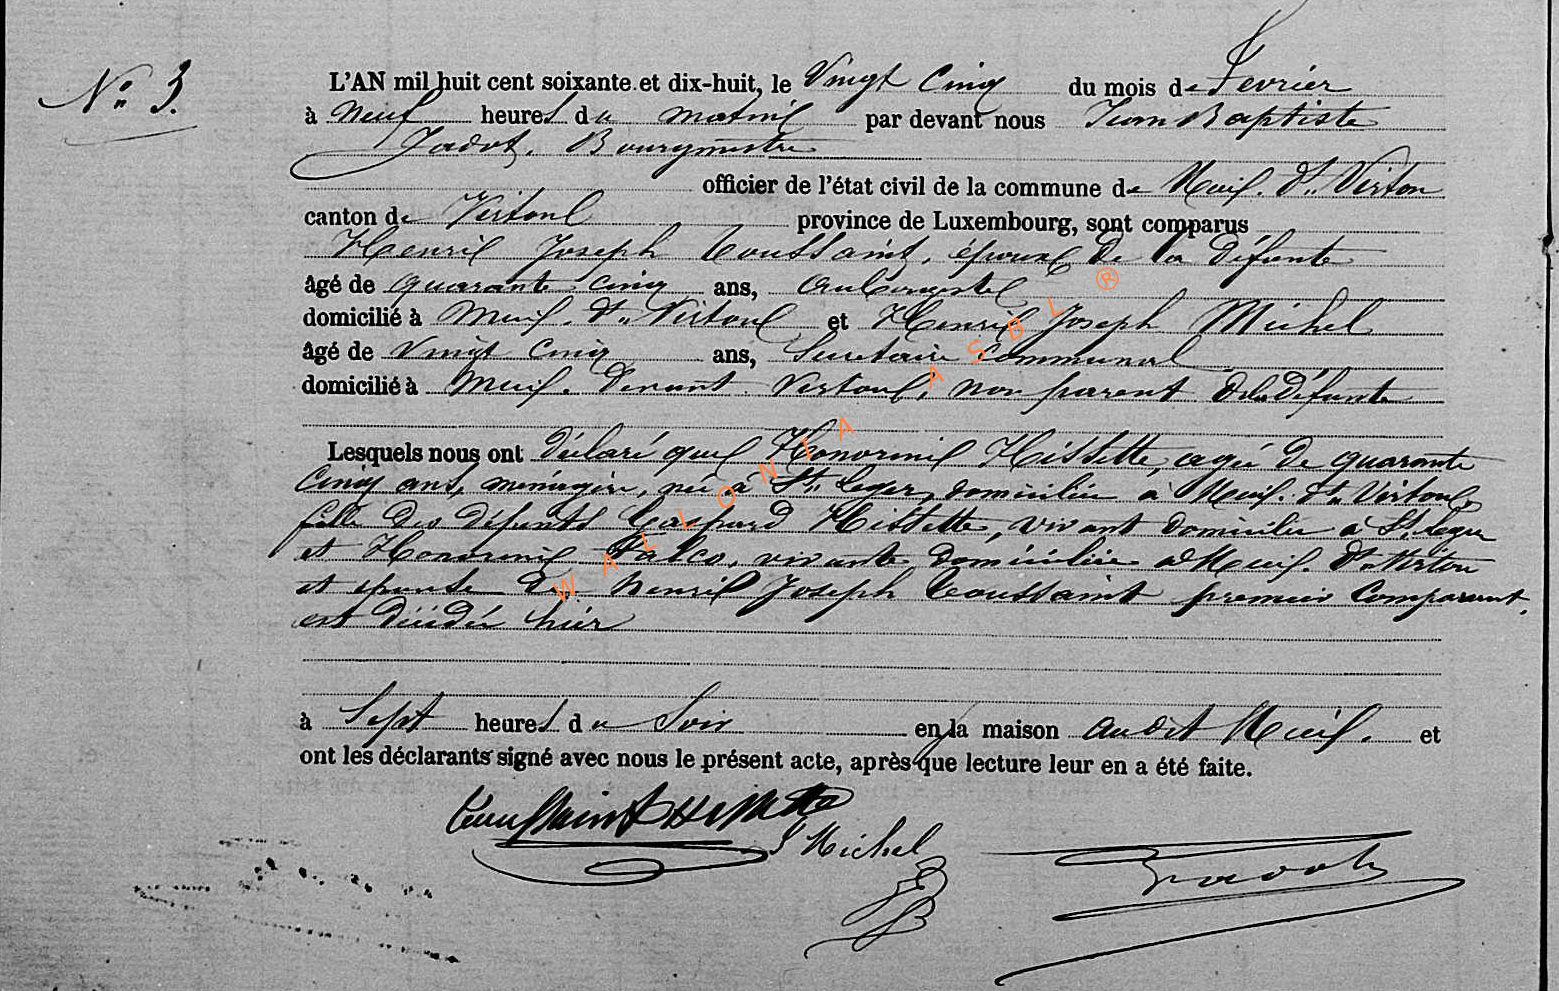 N° 3.
L'AN mil huit cent soixante et dix-huit, le Vingt Cinq du mois de Fevrier
à neuf heures du matin par devant nous Jean Baptiste
Jadot, Bourgmestre
officier de l'état civil de la commune de Meix-dt Virton
canton de Virton province de Luxembourg, sont comparus
Henri Joseph Toussaint, époux de la défunte
âgé de quarante cinq ans, Aubergiste
domicilié à Meix-dt Virton et Henri Joseph Michel
âgé de vingt cinq ans, Secretaire communal
domicilié à Meix-devant Virton, non parent de la défunte
Lesquels nous ont déclaré que Honorine Hissette, agée de quarante
cinq ans, ménagère, née à St Leger, domiciliée à Meix-dt Virton
fille des défunts Gaspard Hissette, vivant domicilié à St Leger
et Honorine, vivante domiciliée à Meix-dt Virton
et épouse de Henri Joseph Toussaint premier Comparant,
est décédée hier
à Sept heures du Soir en la maison audit Meix- et
ont les déclarants signé avec nous le présent acte, après que lecture leur en a été faite.
Toussaint Hissette
J Michel
Jadot
WALLONIA ASBL ®